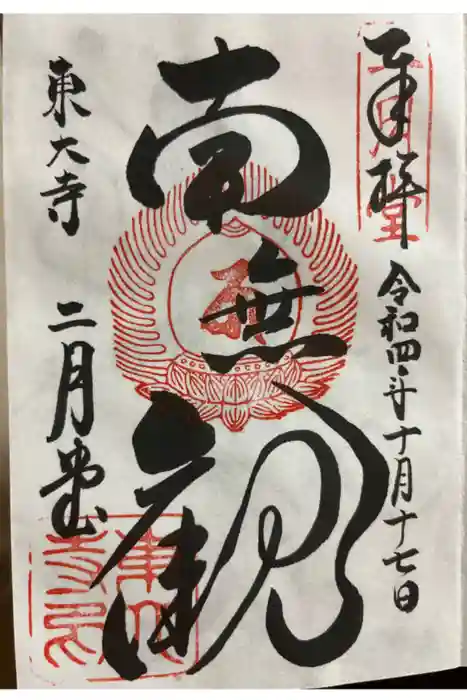 奉拝
二月堂
令和四年十月十七日
南無観
東大寺
二月堂